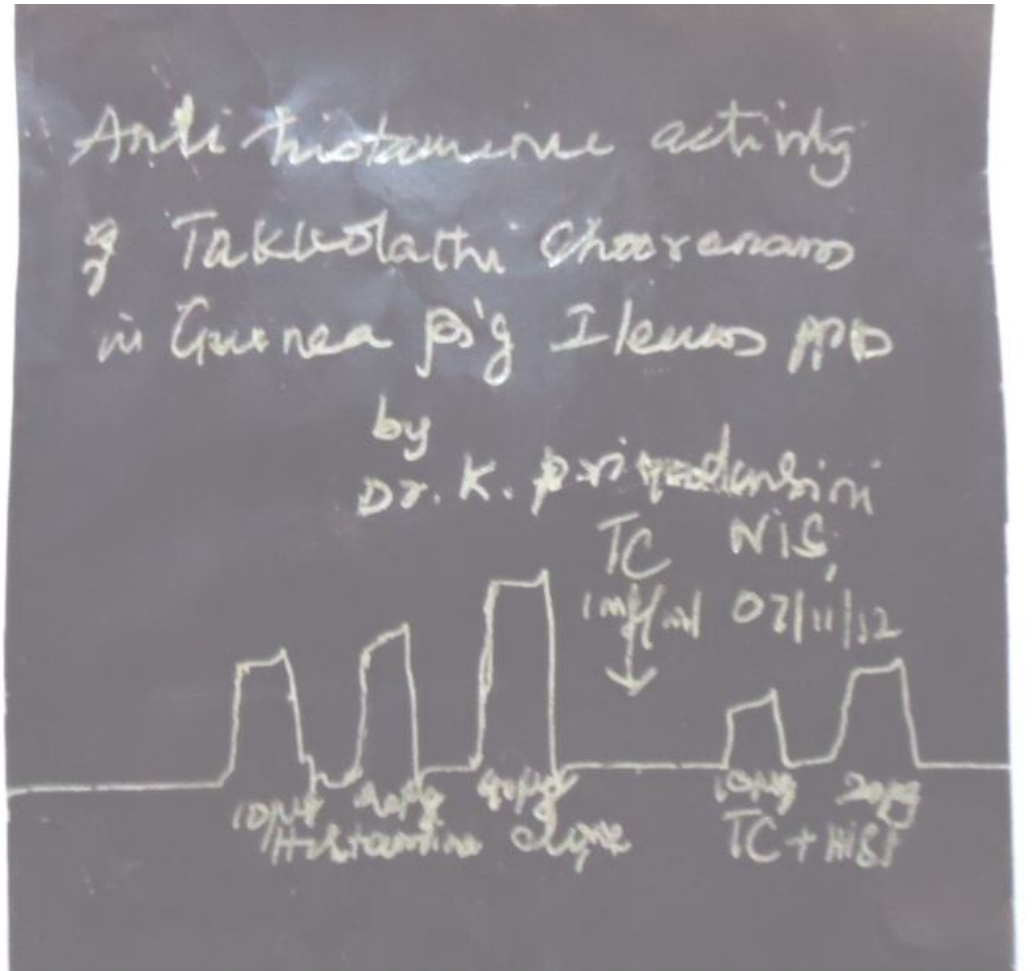 Anti histamine activity
of Takkolathi Chooranam
in Guinea pig Ileum
by
Dr. K. Priyadarsini
TC NIS,
1ml/ml 07/11/12
10µg 20µg 40µg 10µg 20µg
Histamine alone TC + HIST